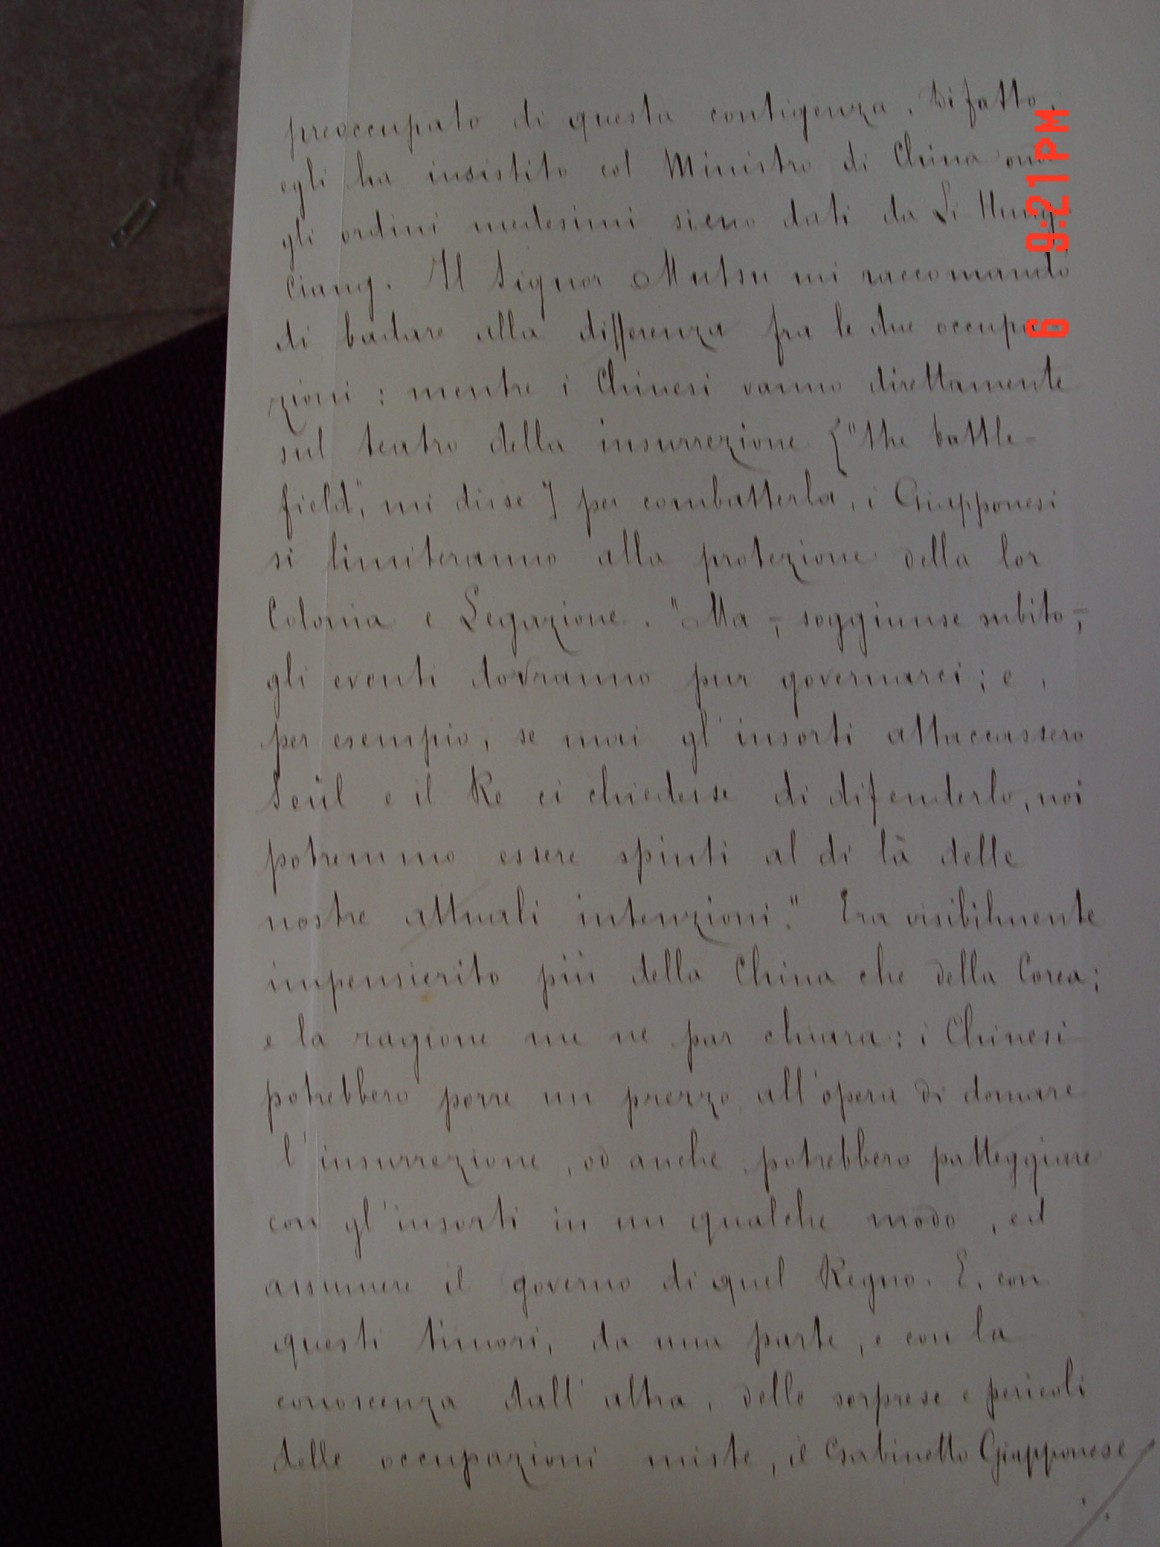 preoccupato di questa contigenza. Di fatto,
egli ha insistito col Ministro di China onde
gli ordini medesimi sieno dati da Li Hung
Ciang. Il Signor Mutsu mi raccomandò
di badare alla differenza fra le due occupa
zioni: mentre i Chinesi vanno direttamente
sul teatro della insurrezione ["the battle-
field", mi disse] per combatterla, i Giapponesi
si limiteranno alla protezione della lor
Colonia e Legazione. "Ma -, soggiunse subito -,
gli eventi dovranno pur governarci; e,
per esempio, se mai gl'insorti attaccassero
Seùl e il Re ci chiedesse di difenderlo, noi
potremmo essere spinti al di là delle
nostre attuali intenzioni." Era visibilmente
impensierito più della China che della Corea;
e la ragione me ne par chiara: i Chinesi
potrebbero porre un prezzo all'opera di domare
l'insurrezione, od anche potrebbero patteggiare
con gl'insorti in un qualche modo, ed
assumere il governo di quel Regno. E, con
questi timori, da una parte, e con la
conoscenza dall'altra, delle sorprese e pericoli
delle occupazioni miste, il Gabinetto Giapponese
6 9:21PM